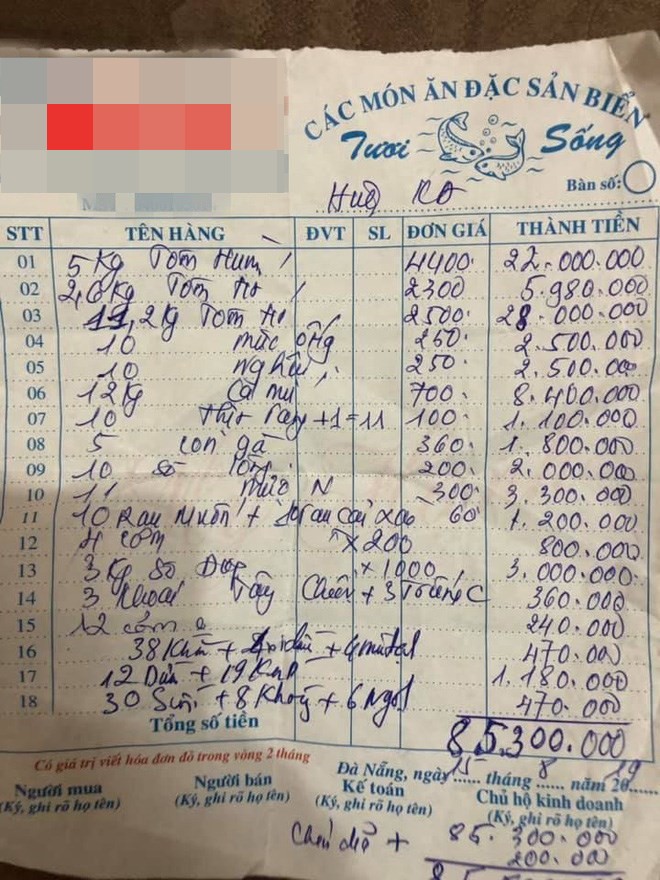 CÁC MÓN ĂN ĐẶC SẢN BIỂN
Tươi Sống
Bàn số:
STT TÊN HÀNG ĐVT SL ĐƠN GIÁ THÀNH TIỀN
01 5 Kg Tôm Hùm 4400 22.000.000
02 2,6 Kg Tôm 2300 5.980.000
03 11,2 Kg Tôm 2500 28.000.000
04 10 mực ống 250 2.500.000
05 10 nghêu 250 2.500.000
06 12 Kg Cá mú 700 8.400.000
07 10 +1=11 100 1.100.000
08 5 con gà 360 1.800.000
09 10 sò lông 200 2.000.000
10 11 mực N 300 3.300.000
11 10 Rau Muốn + 10 rau cải xào 60 1.200.000
12 4 cơm x 200 800.000
13 3 Kg sò x 1000 3.000.000
14 3 Khoai Tây Chiên + 3 Trứng C 360.000
15 12 cơm 240.000
16 38 Khăn + + 470.000
17 12 Dừa + 19 1.180.000
18 30 + 8 + 6 ngọt 470.000
Tổng số tiền 85.300.000
Có giá trị viết hóa đơn đỏ trong vòng 2 tháng
Đà Nẵng, ngày 15 tháng 8 năm 2019
Người mua Người bán Kế toán Chủ hộ kinh doanh
(Ký, ghi rõ họ tên) (Ký, ghi rõ họ tên) (Ký, ghi rõ họ tên) (Ký, ghi rõ họ tên)
+ 85.300.000
200.000